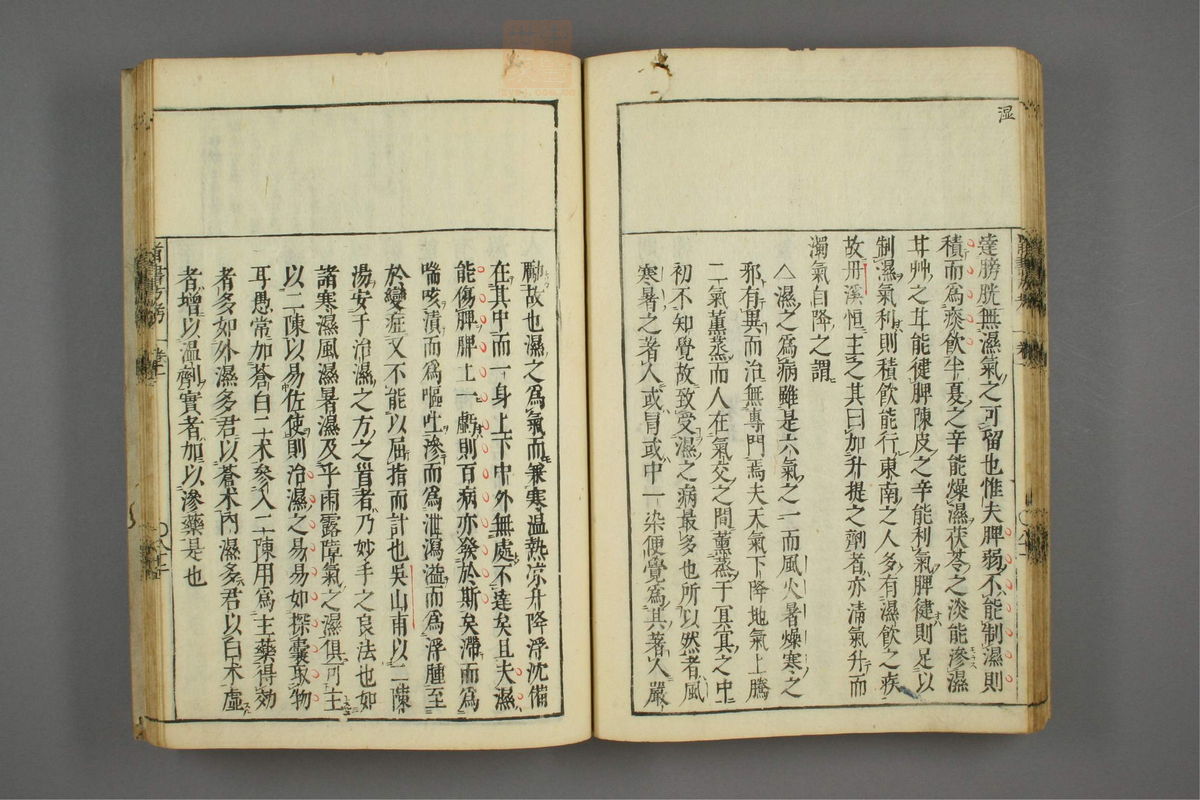 湿
達膀胱無濕氣之可留也惟夫脾弱不能制濕則
積而為痰飲半夏之辛能燥濕茯苓之淡能滲濕
甘艸之甘能健脾陳皮之辛能利氣脾健則足以
制濕氣利則積飲能行東南之人多有濕飲之疾
故丹溪恒主之其曰加升提之劑者亦清氣升而
濁氣自降之謂
△濕之為病雖是六氣之一而風火暑燥寒之
邪有異而治無專門焉夫天氣下降地氣上騰
二氣薰蒸而人在氣交之間薰蒸于冥冥之中
初不知覺故致受濕之病最多也所以然者風
寒暑之著人或冒或中一染便覺為其著人嚴
也濕之為氣而兼寒温熱凉升降浮沈備
在其中而一身上下中外無處不達矣且夫濕
能傷脾脾土一虧則百病亦發於斯矣滯而為
喘咳漬而為嘔吐滲而為泄瀉溢而為浮腫至
於變症又不能以屈指而計也吳山甫以二陳
湯安于治濕之方之首者乃妙手之良法也如
諸寒濕風濕暑濕及乎雨露障氣之濕俱可主
以二陳以易佐使則治濕之易易如探囊取物
耳愚常加蒼白二术參入二陳用為主藥得効
者多如外濕多君以蒼术內濕多君以白术虛
者增以温劑實者加以滲藥是也